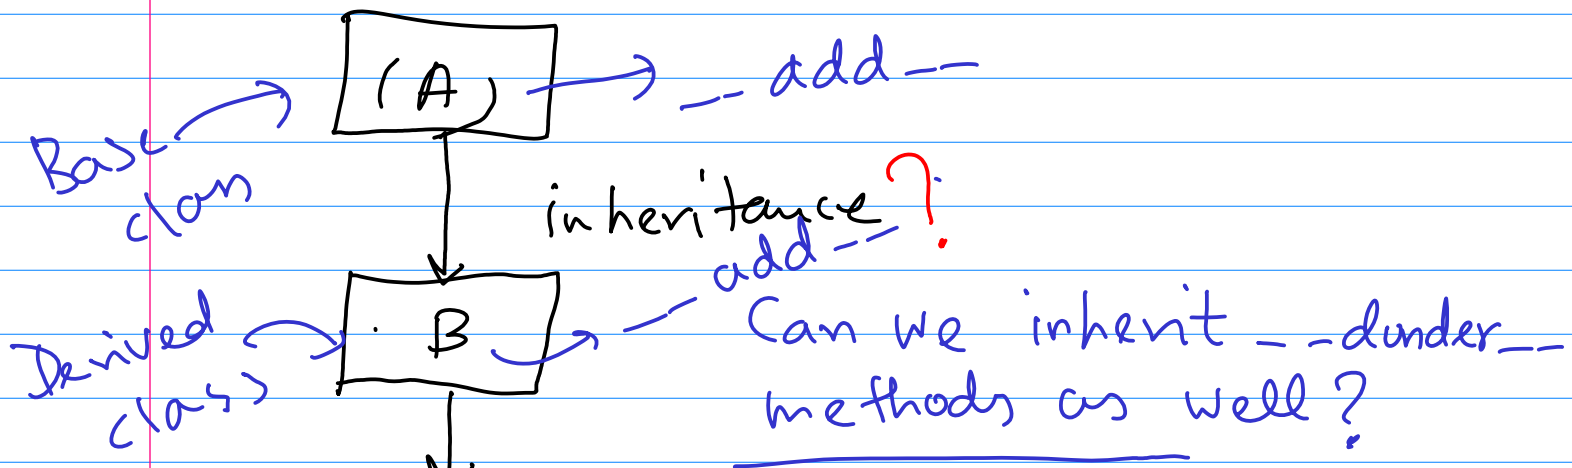 (A)
__ add __
Base
class
inheritance ?
__ add __
Derived
class
B
Can we inherit __dunder__
methods as well?